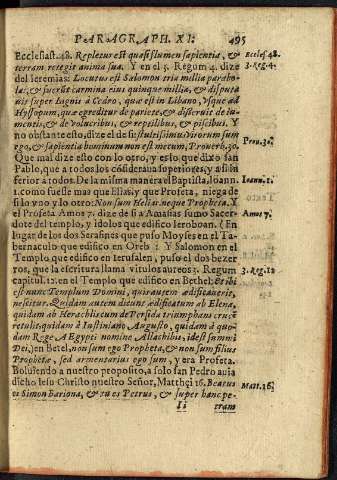 PARAGRAPH. XI: 495
Ecclesiast. 48. Repletus est quasi flumen sapientia, & Eccles. 48.
terram retegit anima sua. Y en el 3. Regum 4. dize 3. Reg. 4.
del Ieremias: Locutus est Salomon tria millia parabo-
las; & fuerũt carmina eius quinque millia, & disputa
uit super lignis à Cedro, quæ est in Libano, vsque ad
Hyssopum, quæ egreditur de pariete, & disseruit de iu-
mentis, & de volucribus, & reptilibus, & piscibus. Y
no obstante esto, dize el de si: stultissimus virorum sum
ego, & sapientia hominum non est mecum, Prouerb. 30. Prou. 30.
Que mal dize esto con lo otro, y es lo que dixo san
Pablo, que a todos los consideraua superiores, y a si in
ferior a todos. De la misma manera el Baptista, Ioann. Ioann. 1.
1. como fuesse mas que Elias, y que Profeta, niega de
si lo vno y lo otro: Non sum Helias, neque Propheta. Y
el Profeta Amos 7. dize de si a Amasias sumo Sacer Amos 7.
dote del templo, y idolos que edifico Ieroboan. (En
lugar de los dos Serafines que puso Moyses en el Ta-
bernaculo que edifico en Oreb: Y Salomon en el
Templo que edifico en Ierusalen, puso el dos bezer
ros, que la escritura llama vitulos aureos 3. Regum 3. Reg. 12
capitul. 12. en el Templo que edifico en Bethel: & ibi
est nunc Templum Domini, quis autem ædificauerit,
nescitur. Quidam autem dicunt ædificatum ab Elena,
quidam ab Herachlio cum de Persida triumpham cruce
retulit, quidam à Iustiniano Augusto, quidam à quo-
dam Rege Ægypti nomine Allachibis, id est summi
Dei,) en Betel, non sum ego Propheta, & non sum filius
Prophetæ, sed armentarius ego sum, y era Profeta.
Boluiendo a nuestro proposito, a solo san Pedro auia
dicho Iesu Christo nuestro Señor, Matthęi 16. Beatus Matt. 16.
es Simon Bariona, & tu es Petrus, & super hanc pe-
Ii tram